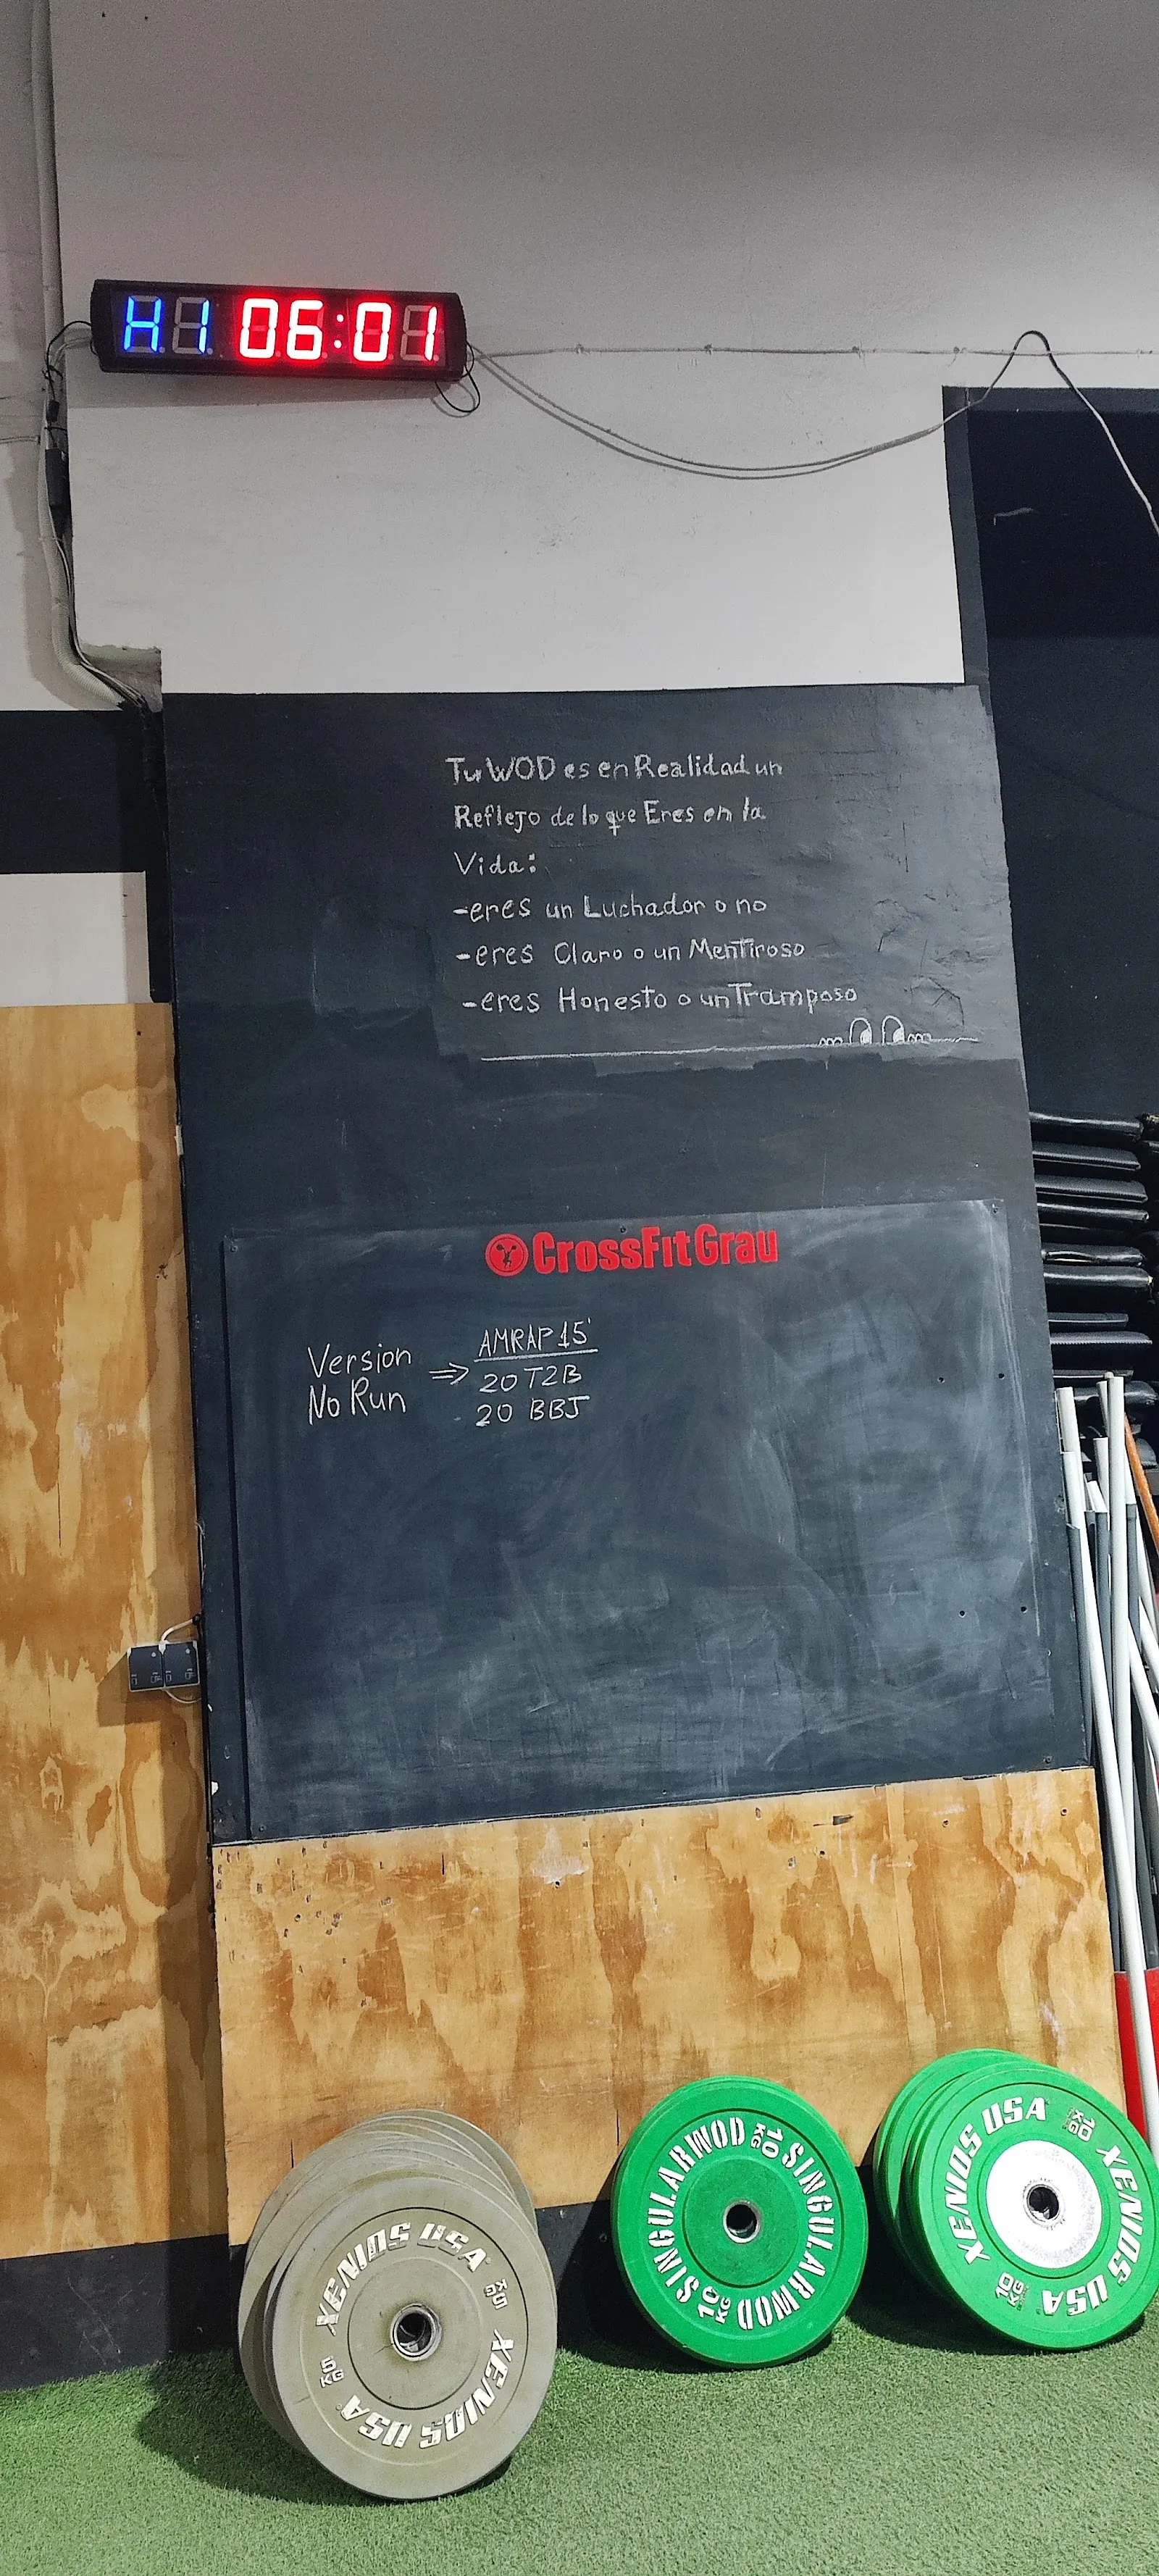 H1 06:01
Tu WOD es en Realidad un
Reflejo de lo que Eres en la
Vida:
-eres un Luchador o no
-eres Claro o un Mentiroso
-eres Honesto o un Tramposo
CrossFit Grau
Version
No Run
⇒
AMRAP 15'
20 T2B
20 BBJ
XENIOS USA
5 KG
XENIOS USA
5 KG
SINGULARWOD
10 KG
SINGULARWOD
10 KG
XENIOS USA
10 KG
XENIOS USA
10 KG